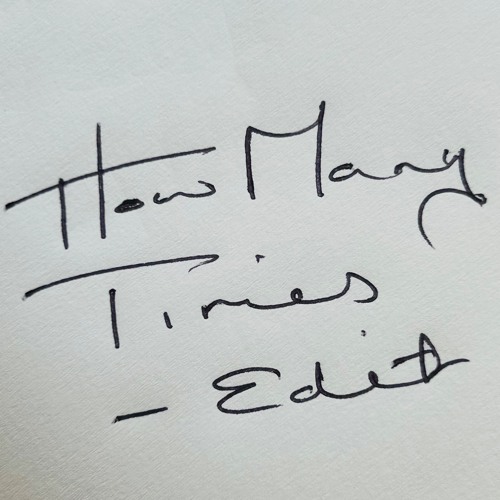 How Many
Times
- Edit